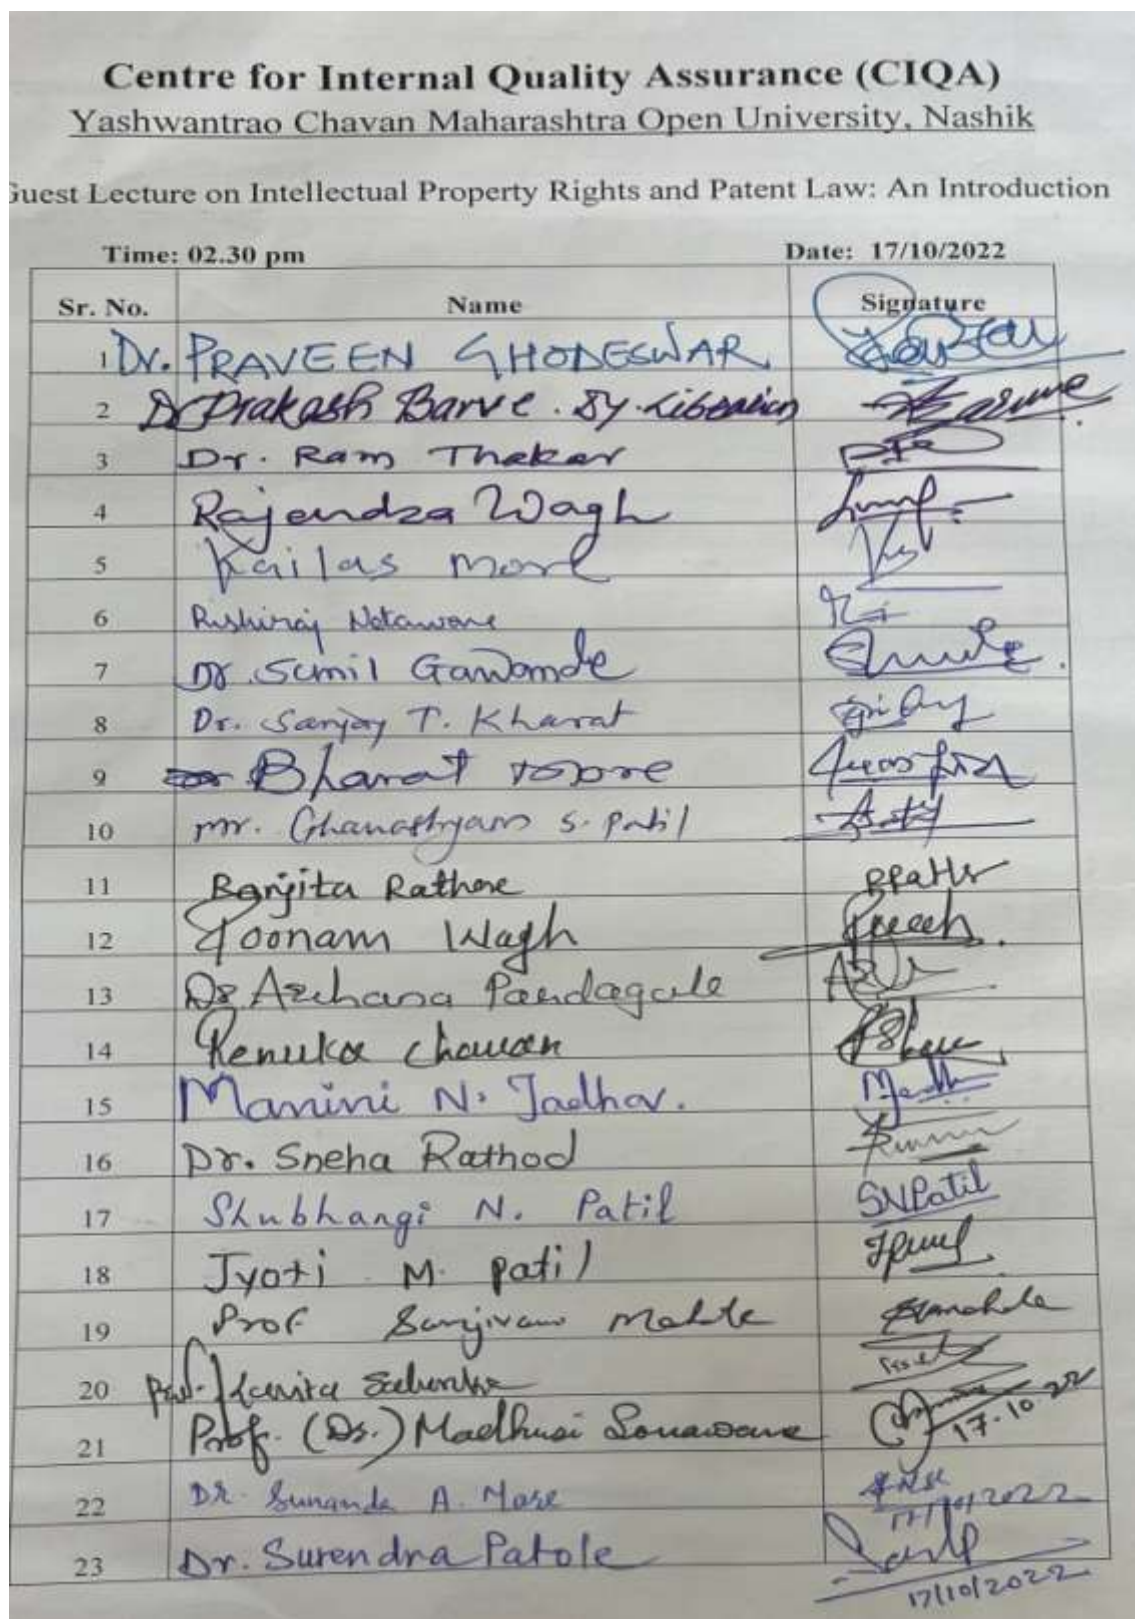 Centre for Internal Quality Assurance (CIQA)
Yashwantrao Chavan Maharashtra Open University, Nashik
Guest Lecture on Intellectual Property Rights and Patent Law: An Introduction
Time: 02.30 pm Date: 17/10/2022
Sr. No. Name Signature
1 Dr. PRAVEEN GHODESWAR
2 Dr Prakash Barve. Dy. Librarian
3 Dr. Ram Thakar
4 Rajendra Wagh
5 Kailas More
6 Rishiraj
7 Dr Sunil Gawande
8 Dr. Sanjay T. Kharat
9 Bharat more
10 mr. Ghanashyam S. Patil
11 Ranjita Rathore
12 Poonam Wagh
13 Dr Archana Pandagale
14 Renuka Chavan
15 Manini N. Jadhav.
16 Dr. Sneha Rathod
17 Shubhangi N. Patil SNPatil
18 Jyoti M. patil
19 Prof Sanjivani Mahale
20 Prof. Kavita
21 Prof. (Dr.) Madhuri Sonawane 17.10.22
22 Dr. Sunanda A. More 17/10/2022
23 Dr. Surendra Patole
17/10/2022